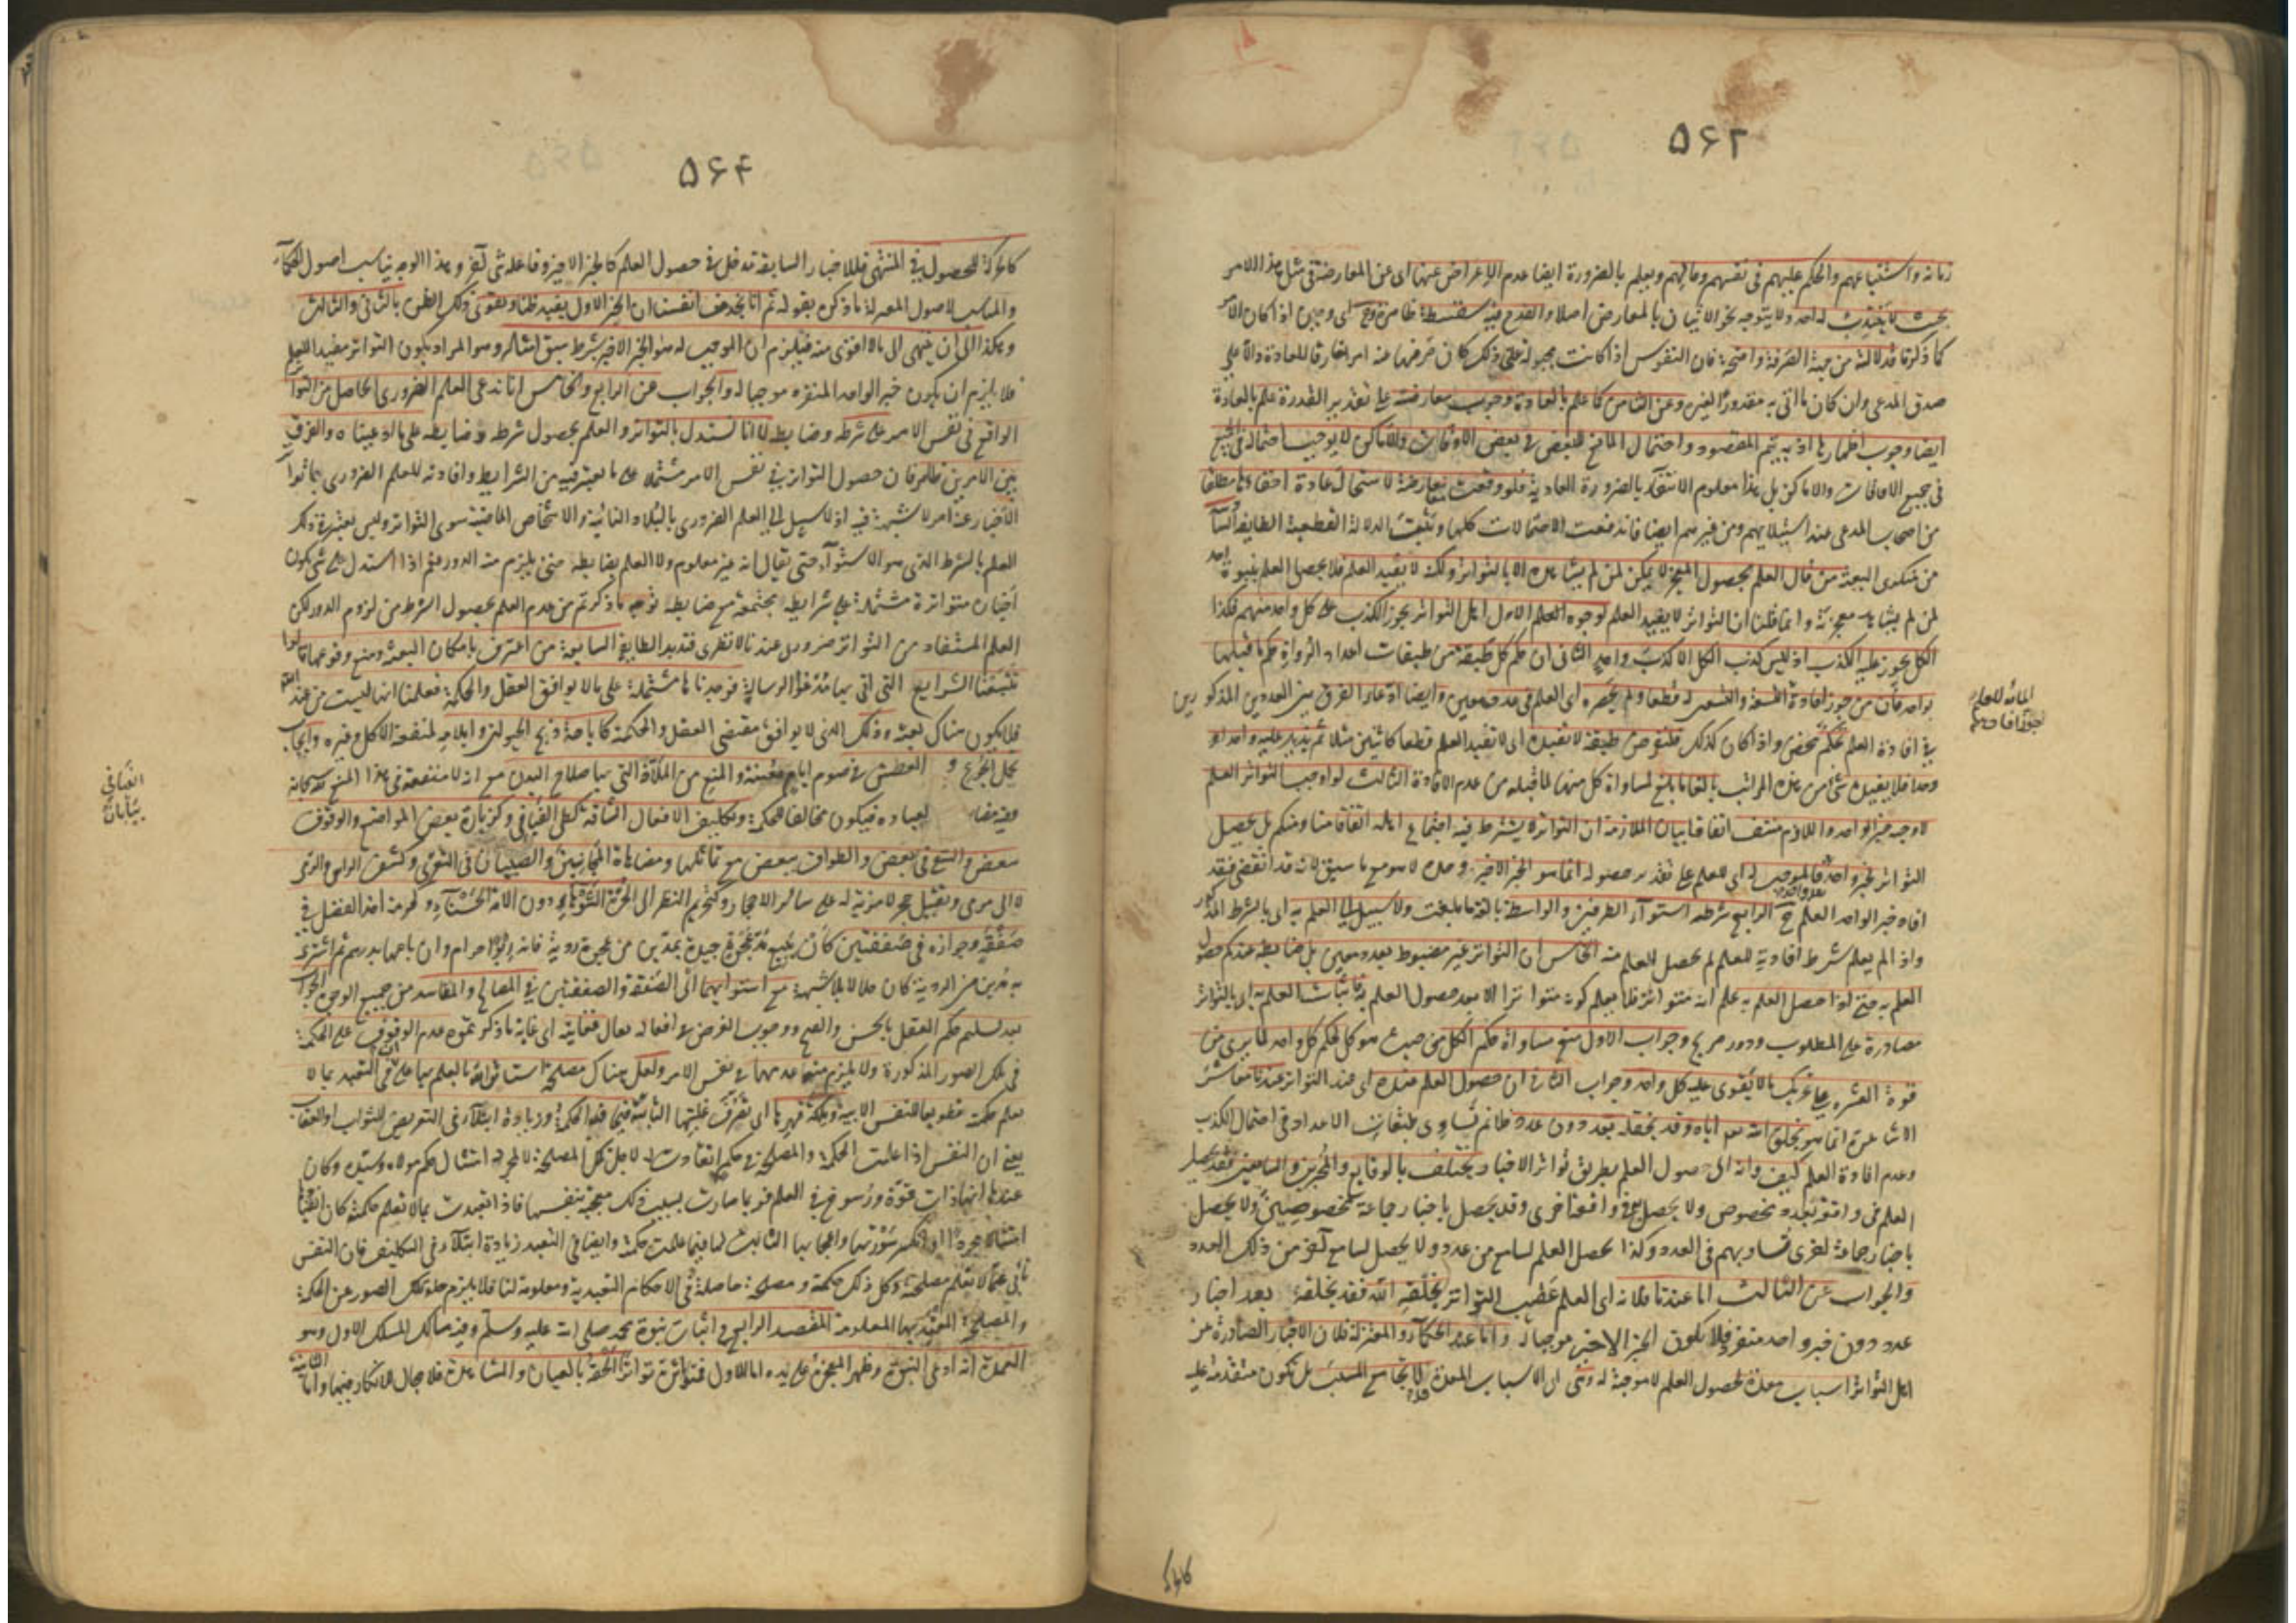 ۵۶۲
زمانه واستتباعهم والحكم عليهم فى نفسهم ومالهم ويعلم بالضرورة ايضا عدم الاعراض عنها اى عن المعارضة فى مثل هذا الامر
بحيث لا ينتدب له احد ولا يتوجه نحو الاتيان بالمعارض اصلا والقدح فيه سفسطة ظاهرة وح اى وحين اذا كان الامر
كما ذكرنا فدلالته من جهة الصرفة واضحة فان النفوس اذا كانت مجبولة على ذلك كان صرفها عنه امرا خارقا للعادة دالا على
صدق المدعى وان كان ما اتى به مقدورا لغيره وعن الثامن كما علم بالعادة وجوب معارضته على تقدير القدرة علم بالعادة
ايضا وجوب اظهارها اذ به يتم المقصود واحتمال المانع للبعض فى بعض الاوقات والاماكن لا يوجب احتماله فى الجميع
فى جميع الاوقات والاماكن بل هذا معلوم الانتفاء بالضرورة العادية فلو وقعت معارضة لاستحال عادة اخفاؤها مطلقا
من اصحاب المدعى عند استيلائهم ومن غيرهم ايضا فاندفعت الاحتمالات كلها وثبتت الدلالة القطعية الطايفة السا
من منكرى البعثة من قال العلم بحصول المعجز لا يمكن لمن لم يشاهده الا بالتواتر ولكنه لا يفيد العلم فلا يحصل العلم بنبوة احد
لمن لم يشاهد معجزته وانما قلنا ان التواتر لا يفيد العلم لوجوه الاول اهل التواتر يجوز الكذب على كل واحد منهم فكذا
الكل يجوز عليه الكذب اذ ليس كذب الكل الا كذب واحد الثانى ان حكم كل طبقة من طبقات اعداد الرواة حكم ما قبلها
بواحد فان من جوز افادة التسعة والتسعين له قطعا ولم يحصره اى العلم فى عدد معين وايضا ادعاء الفرق بين العددين المذكورين
فى افادة العلم تحكم محض واذا كان كذلك فلنفرض طبقة لا تفيده اى لا تفيد العلم قطعا كاثنين مثلا ثم نزيد عليه واحدا و
احدا فلا يفيده شئ من هذه المراتب بالغا ما بلغ لمساواة كل منها لما قبله من عدم الافادة الثالث لو اوجب التواتر العلم
لاوجبه خبر الواحد واللازم منتف اتفاقا بيان الملازمة ان التواتر لا يشترط فيه اجتماع اهله اتفاقا منا ومنكم بل يحصل
التواتر بخبر واحد بعد واحد فالموجب له اى للعلم على تقدير حصوله انما هو الخبر الاخير وحده لا هو مع ما سبق لانه قد انقضى فقد
افاد خبر الواحد العلم ح الرابع شرطه استواء الطرفين والواسطة بالغة ما بلغت ولا سبيل الى العلم به اى بالشرط المذكور
واذا لم يعلم شرط افادته للعلم لم يحصل العلم منه الخامس ان التواتر غير مضبوط بعدد معين بل ضابطه عندكم حصول
العلم به حتى اذا حصل العلم به علم انه متواتر فلا يعلم كونه متواترا الا بعد حصول العلم به فاثبات العلم به اى بالتواتر
مصادرة على المطلوب ودور صريح وجواب الاول منع مساواة حكم الكل من حيث هو كل لحكم كل واحد لما يرى من
قوة العشرة على تحريك ما لا يقوى عليه كل واحد وجواب الثانى ان حصول العلم عنده اى عند التواتر عندنا معاشر
الاشاعرة انما هو بخلق الله تعالى اياه وقد يخلقه بعدد دون عدد فلا نم تساوى طبقات الاعداد فى احتمال الكذب
وعدم افادة العلم كيف وانه اى حصول العلم بطريق تواتر الاخبار يختلف بالوقايع والمخبرين والسامعين فقد يحصل
العلم فى واقعة بعدد مخصوص ولا يحصل به فى واقعة اخرى وقد يحصل باخبار جماعة مخصوصين ولا يحصل
باخبار جماعة اخرى تساويهم فى العدد وكذا يحصل العلم لسامع من عدد ولا يحصل لسامع آخر من ذلك العدد
والجواب عن الثالث اما عندنا فلانه اى العلم عقيب التواتر بخلق الله فقد يخلقه بعد اخبار
عدد دون خبر واحد منفرد فلا يكون الخبر الاخير موجبا له واما عند الحكماء والمعتزلة فلان الاخبار الصادرة من
اهل التواتر اسباب معدة لحصول العلم لا موجبة له وهى اى الاسباب المعدة قد لا تجامع المسبب بل تكون متقدمة عليه
كالحركة
۵۶۴
كالحركة للحصول فى المنتهى فللاخبار السابقة مدخل فى حصول العلم كالخبر الاخير وفاعله شئ آخر وهذا الوجه يناسب اصول الحكماء
والمناسب لاصول المعتزلة ما ذكره بقوله ثم انا نجد من انفسنا ان الخبر الاول يفيد ظنا ويقوى ذلك الظن بالثانى والثالث
وهكذا الى ان ينتهى الى ما لا اقوى منه فيلزم ان الموجب له هو الخبر الاخير بشرط سبق امثاله وهو المراد بكون التواتر مفيدا للعلم
فلا يلزم ان يكون خبر الواحد المنفرد موجبا له والجواب عن الرابع والخامس انا ندعى العلم الضرورى الحاصل من التواتر
الواقع فى نفس الامر على شرطه وضابطه لا انا نستدل بالتواتر والعلم بحصول شرطه وضابطه على ما ادعيناه والفرق
بين الامرين ظاهر فان حصول التواتر فى نفس الامر مشتملا على ما يعتبر فيه من الشرايط وافادته للعلم الضرورى بما تواتر
الاخبار عنه امر لا شبهة فيه اذ لا سبيل الى العلم الضرورى بالبلاد النائية والاشخاص الماضية سوى التواتر وليس يعتبر فى ذلك
العلم بالشرط الذى هو الاستواء حتى يقال انه غير معلوم ولا العلم بضابطه حتى يلزم منه الدور نعم اذا استدل على شئ بكون
اخباره متواترة مشتملة على شرايطه مجتمعة مع ضابطه توجه ما ذكرتم من عدم العلم بحصول الشرط من لزوم الدور لكن
العلم المستفاد من التواتر ضرورى عندنا لا نظرى فتدبر الطايفة السابعة من اعترف بامكان البعثة ومنع وقوعها قالوا
تتبعنا الشرايع التى اتى بها مدعو الرسالة فوجدناها مشتملة على ما لا يوافق العقل والحكمة فعلمنا انها ليست من عند الله
فلا يكون هناك بعثة وذلك الذى لا يوافق مقتضى العقل والحكمة كاباحة ذبح الحيوان وايلامه لمنفعة الاكل وغيره وايجاب
تحمل الجوع و العطش فى صوم ايام معينة والمنع من الملاذ التى بها صلاح البدن مع انه لا منفعة فى هذا المنع لله سبحانه
وفيه مضار لعباده فيكون مخالفا للحكمة وتكليف الافعال الشاقة كطى الفيافى وكزيارة بعض المواضع والوقوف
ببعض والسعى فى بعض والطواف ببعض مع تماثلها ومضاهاة المجانين والصبيان فى التعرى وكشف الراس والرمى
لا الى مرمى وتقبيل حجر لا مزية له على سائر الاحجار وكتحريم النظر الى الحرة الشوهاء دون الامة الحسناء وكحرمة اخذ الفضل فى
صفقة وجوازه فى صفقتين كان يبيع مد عجوة جيدة بمدين من عجوة ردية فانه ربوا حرام وان باعها بدرهم ثم اشترى
به مدين من الردية كان حلالا بلا شبهة مع استوائهما اى الصفقة والصفقتين فى المصالح والمفاسد من جميع الوجوه الجواب
بعد تسليم حكم العقل بالحسن والقبح ووجوب الغرض فى افعاله تعالى فغايته اى غاية ما ذكرتموه عدم الوقوف على الحكمة
فى تلك الصور المذكورة ولا يلزم منه عدمها فى نفس الامر ولعل هناك مصلحة استاثر الله بالعلم بها على ان فى التعبد بما لا
يعلم حكمته تطويعا للنفس الابية وملكة قهرها اى تعرف غلبتها الثابتة فيما فيه الحكمة وزيادة ابتلاء فى التعريض للثواب والعقاب
يعنى ان النفس اذا علمت الحكمة والمصلحة فى حكم انقادت له لاجل تلك المصلحة لا لمجرد امتثال حكم مولاه وسيده وكان
عندها انها ذات قوة ورسوخ فى العلم فربما صارت بسبب ذلك معجبة بنفسها فاذا تعبدت بما لا تعلم حكمته كان انقيادها
امتثالا مجردا وانكسر سورتها واعجابها الثابت لها فيما علمت حكمته وايضا فى التعبد زيادة ابتلاء فى التكليف فان النفس
تأبى عما لا تعلم مصلحته وكل ذلك حكمة ومصلحة حاصلة فى الاحكام التعبدية ومعلومة لنا فلا يلزم خلو تلك الصور عن الحكمة
والمصلحة المعتد بها المعلومة المقصد الرابع فى اثبات نبوة محمد صلى الله عليه وسلم وفيه مسالك المسلك الاول وهو
العمدة انه ادعى النبوة وظهر المعجزة على يده اما الاول فتواتر تواترا الحقه بالعيان والمشاهدة فلا مجال للانكار فيها واما الثانية
الفيافي
بيابان